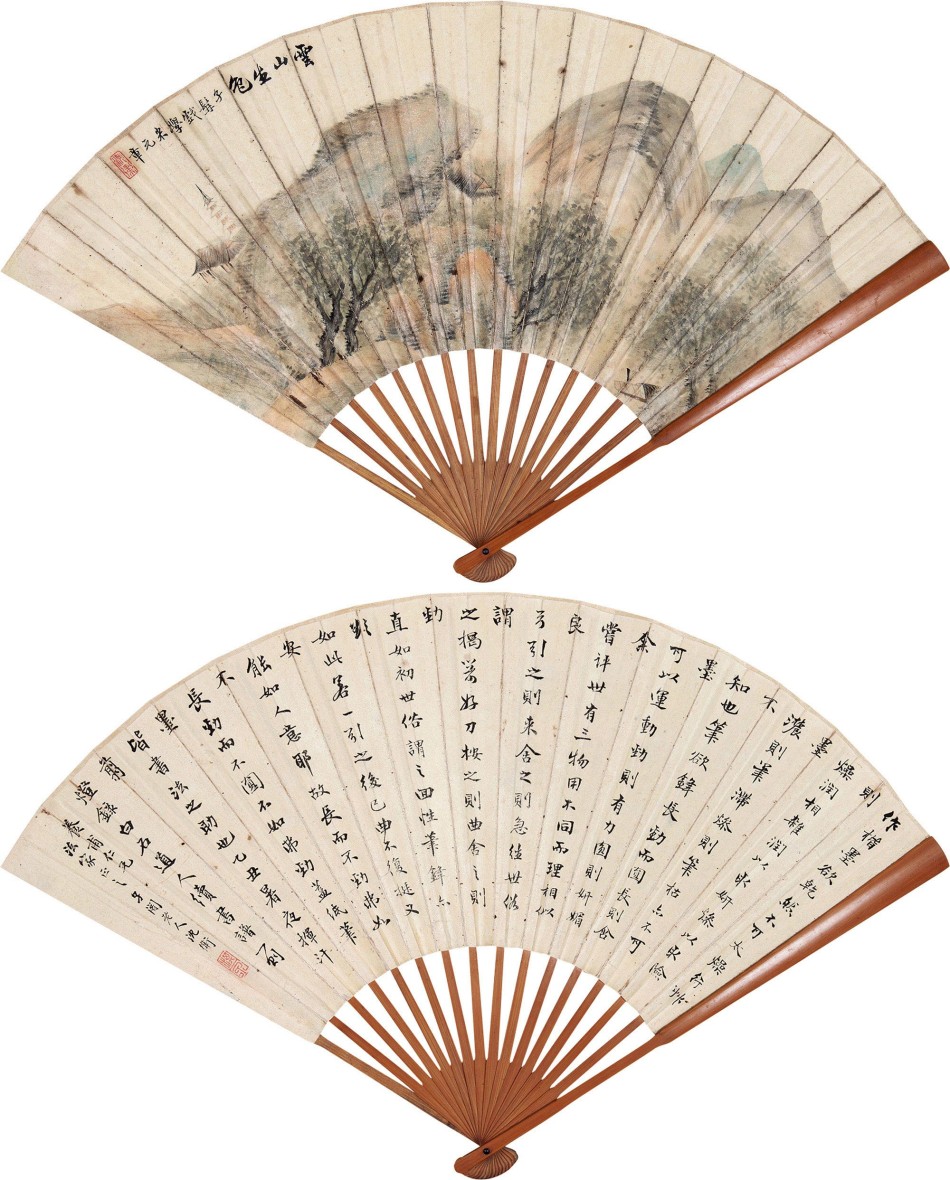 雲山生色
子髥戲學米元章
作
楷墨欲乾然不可太燥行艸
則
燥潤相雜潤以取妍燥以取險
墨
濃則筆滯燥則筆枯亦不可
不
知也筆欲鋒長勁而圓長則含
墨
可以運動勁則有力圓則妍媚
余
嘗評世有三物用不同而理相似
良
弓引之則来舍之則急往世俗
謂
之揭箭好刀按之則曲舍之則
勁
直如初世俗謂之回性筆鋒亦
欲
如此若一引之後已曲不復挺又
安
能如人意耶故長而不勁弗如
不
長勁而不圓不如弗勁蓋紙筆
墨
皆書法之助也乙丑暑夜揮汗
翦
燈錄白石道人續書譜一則
養甫仁兄
法家正之 沈衛